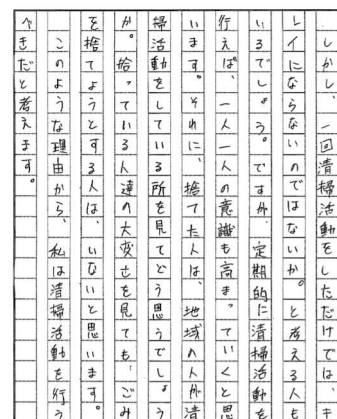 しかし、一回清掃活動をしただけでは、キ
レイにならないのではないか。と考える人も
いるでしょう。ですが、定期的に清掃活動を
行えば、一人一人の意識も高まっていくと思
います。それに、捨てた人は、地域の人が清
掃活動をしている所を見てどう思うでしょう
か。拾っている人達の大変さを見ても、ごみ
を捨てようとする人は、いないと思います。
このような理由から、私は清掃活動を行う
べきだと考えます。